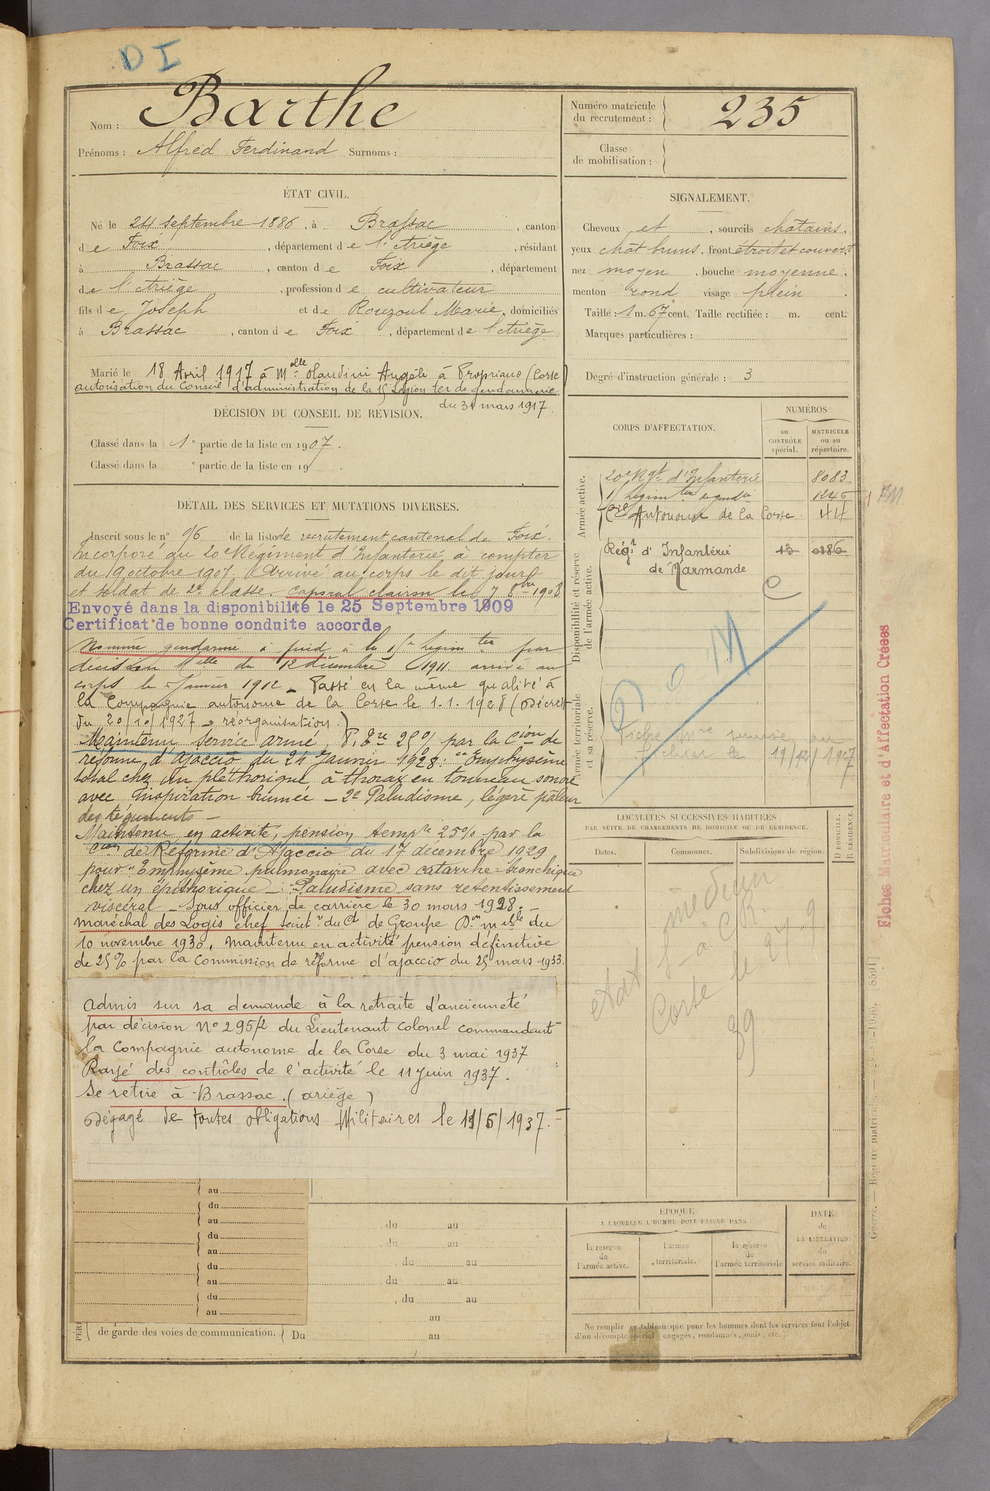 D I
Nom : Barthe
Prénoms : Alfred Ferdinand Surnoms :
Numéro matricule du recrutement : 235
Classe de mobilisation :
ÉTAT CIVIL.
Né le 24 septembre 1886, à Brassac, canton
de Foix, département de l'Ariège, résidant
à Brassac, canton de Foix, département
de l'Ariège, profession de cultivateur
fils de Joseph et de Rouzoul Marie, domiciliés
à Brassac, canton de Foix, département de l'Ariège
Marié le 18 Avril 1917 à Melle Angèle à Propriano (Corse)
autorisation du Conseil d'administration de la 15 Légion ter de gendarmerie
du 31 mars 1917.
SIGNALEMENT.
Cheveux et, sourcils chatains,
yeux chât bruns, front étroit et couvert
nez moyen, bouche moyenne,
menton rond visage plein.
Taille : 1 m. 67 cent. Taille rectifiée : m. cent.
Marques particulières :
Degré d'instruction générale : 3
DÉCISION DU CONSEIL DE REVISION.
Classé dans la 1e partie de la liste en 1907.
Classé dans la e partie de la liste en 19
DÉTAIL DES SERVICES ET MUTATIONS DIVERSES.
Inscrit sous le n° 96 de la liste de recrutement cantonal de Foix.
Incorporé au 20e Régiment d'Infanterie à compter
du 9 octobre 1907. Arrivé au corps le dit jour
et soldat de 2e classe. Caporal clairon le 7 8bre 1908
Envoyé dans la disponibilité le 25 Septembre 1909
Certificat de bonne conduite accordé
Nommé gendarme à pied à la 15e légion ter par
décision Mlle du 12 décembre 1911 arrivé au
corps le Janvier 1912 _ Passé en la même qualité à
la Compagnie autonome de la Corse le 1.1.1928 (Décret
du 20/10/1927 - réorganisation.)
Maintenu service armé, P. 25% par la Cion de
réforme d'Ajaccio du 24 Janvier 1928: Emphysème
total chez un pléthorique à thorax en tonneau sonore
avec inspiration humée - 2e Paludisme, légère pâleur
des téguments -
Maintenu en activité, pension tempre 25% par la
Cion de Réforme d'Ajaccio du 17 decembre 1929
pour: Emphysème pulmonaire avec catarrhe bronchique
chez un - Paludisme sans retentissement
viscéral - Sous officier de carrière le 30 mars 1928. -
Maréchal des Logis chef du Ct de Groupe Don mlle du
10 novembre 1930. Maintenu en activité pension définitive
de 25% par la commission de réforme d'Ajaccio du 25 mars 1933.
Admis sur sa demande à la retraite d'ancienneté
par décision N° 295/2 du Lieutenant Colonel commandant
la Compagnie autonome de la Corse du 3 mai 1937
Rayé des contrôles de l'activité le 11 juin 1937.
Se retire à Brassac (ariège)
Dégagé de toutes obligations Militaires le 11/6/1937. -
CORPS D'AFFECTATION.
NUMÉROS
au CONTRÔLE spécial.
MATRICULE ou au répertoire.
Armée active.
20e Rgt d'Infanterie 8083
15 légion ter de gendie 1245
Cie Autonome de la Corse 44
Disponibilité et réserve de l'armée active.
Régt d'Infanterie 13 0186
de Marmande
C
Armée territoriale et sa réserve.
D O M
Fiche versée au
fichier le 19/12/1927
LOCALITÉS SUCCESSIVES HABITÉES
PAR SUITE DE CHANGEMENTS DE DOMICILE OU DE RÉSIDENCE.
Dates.
Communes.
Subdivisions de région.
D DOMICILE. R RÉSIDENCE.
au
du
au
du
au
du
au
du
au
du au
du au
du au
du au
du au
au
de garde des voies de communication. Du au
ÉPOQUE
À LAQUELLE L'HOMME DOIT PASSER DANS :
la réserve de l'armée active.
l'armée territoriale.
la réserve de l'armée territoriale
DATE de LA LIBÉRATION du service militaire.
Ne remplir ce tableau que pour les hommes dont les services font l'objet
d'un décompte spécial : engagés, condamnés, omis, etc.
Fiches Matriculaire et d'Affectation Créées